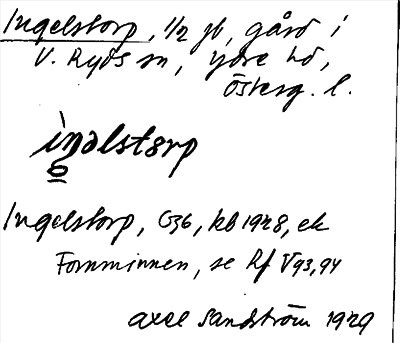 Ingelstorp, 1/2 jb, gård i
V. Ryds sn, Ydre hd,
Österg. l.
ìŋəlstərp
Ingelstorp, G36, kb 1928, ek
Fornminnen, se Rf V93,94
Axel Sandström 1929